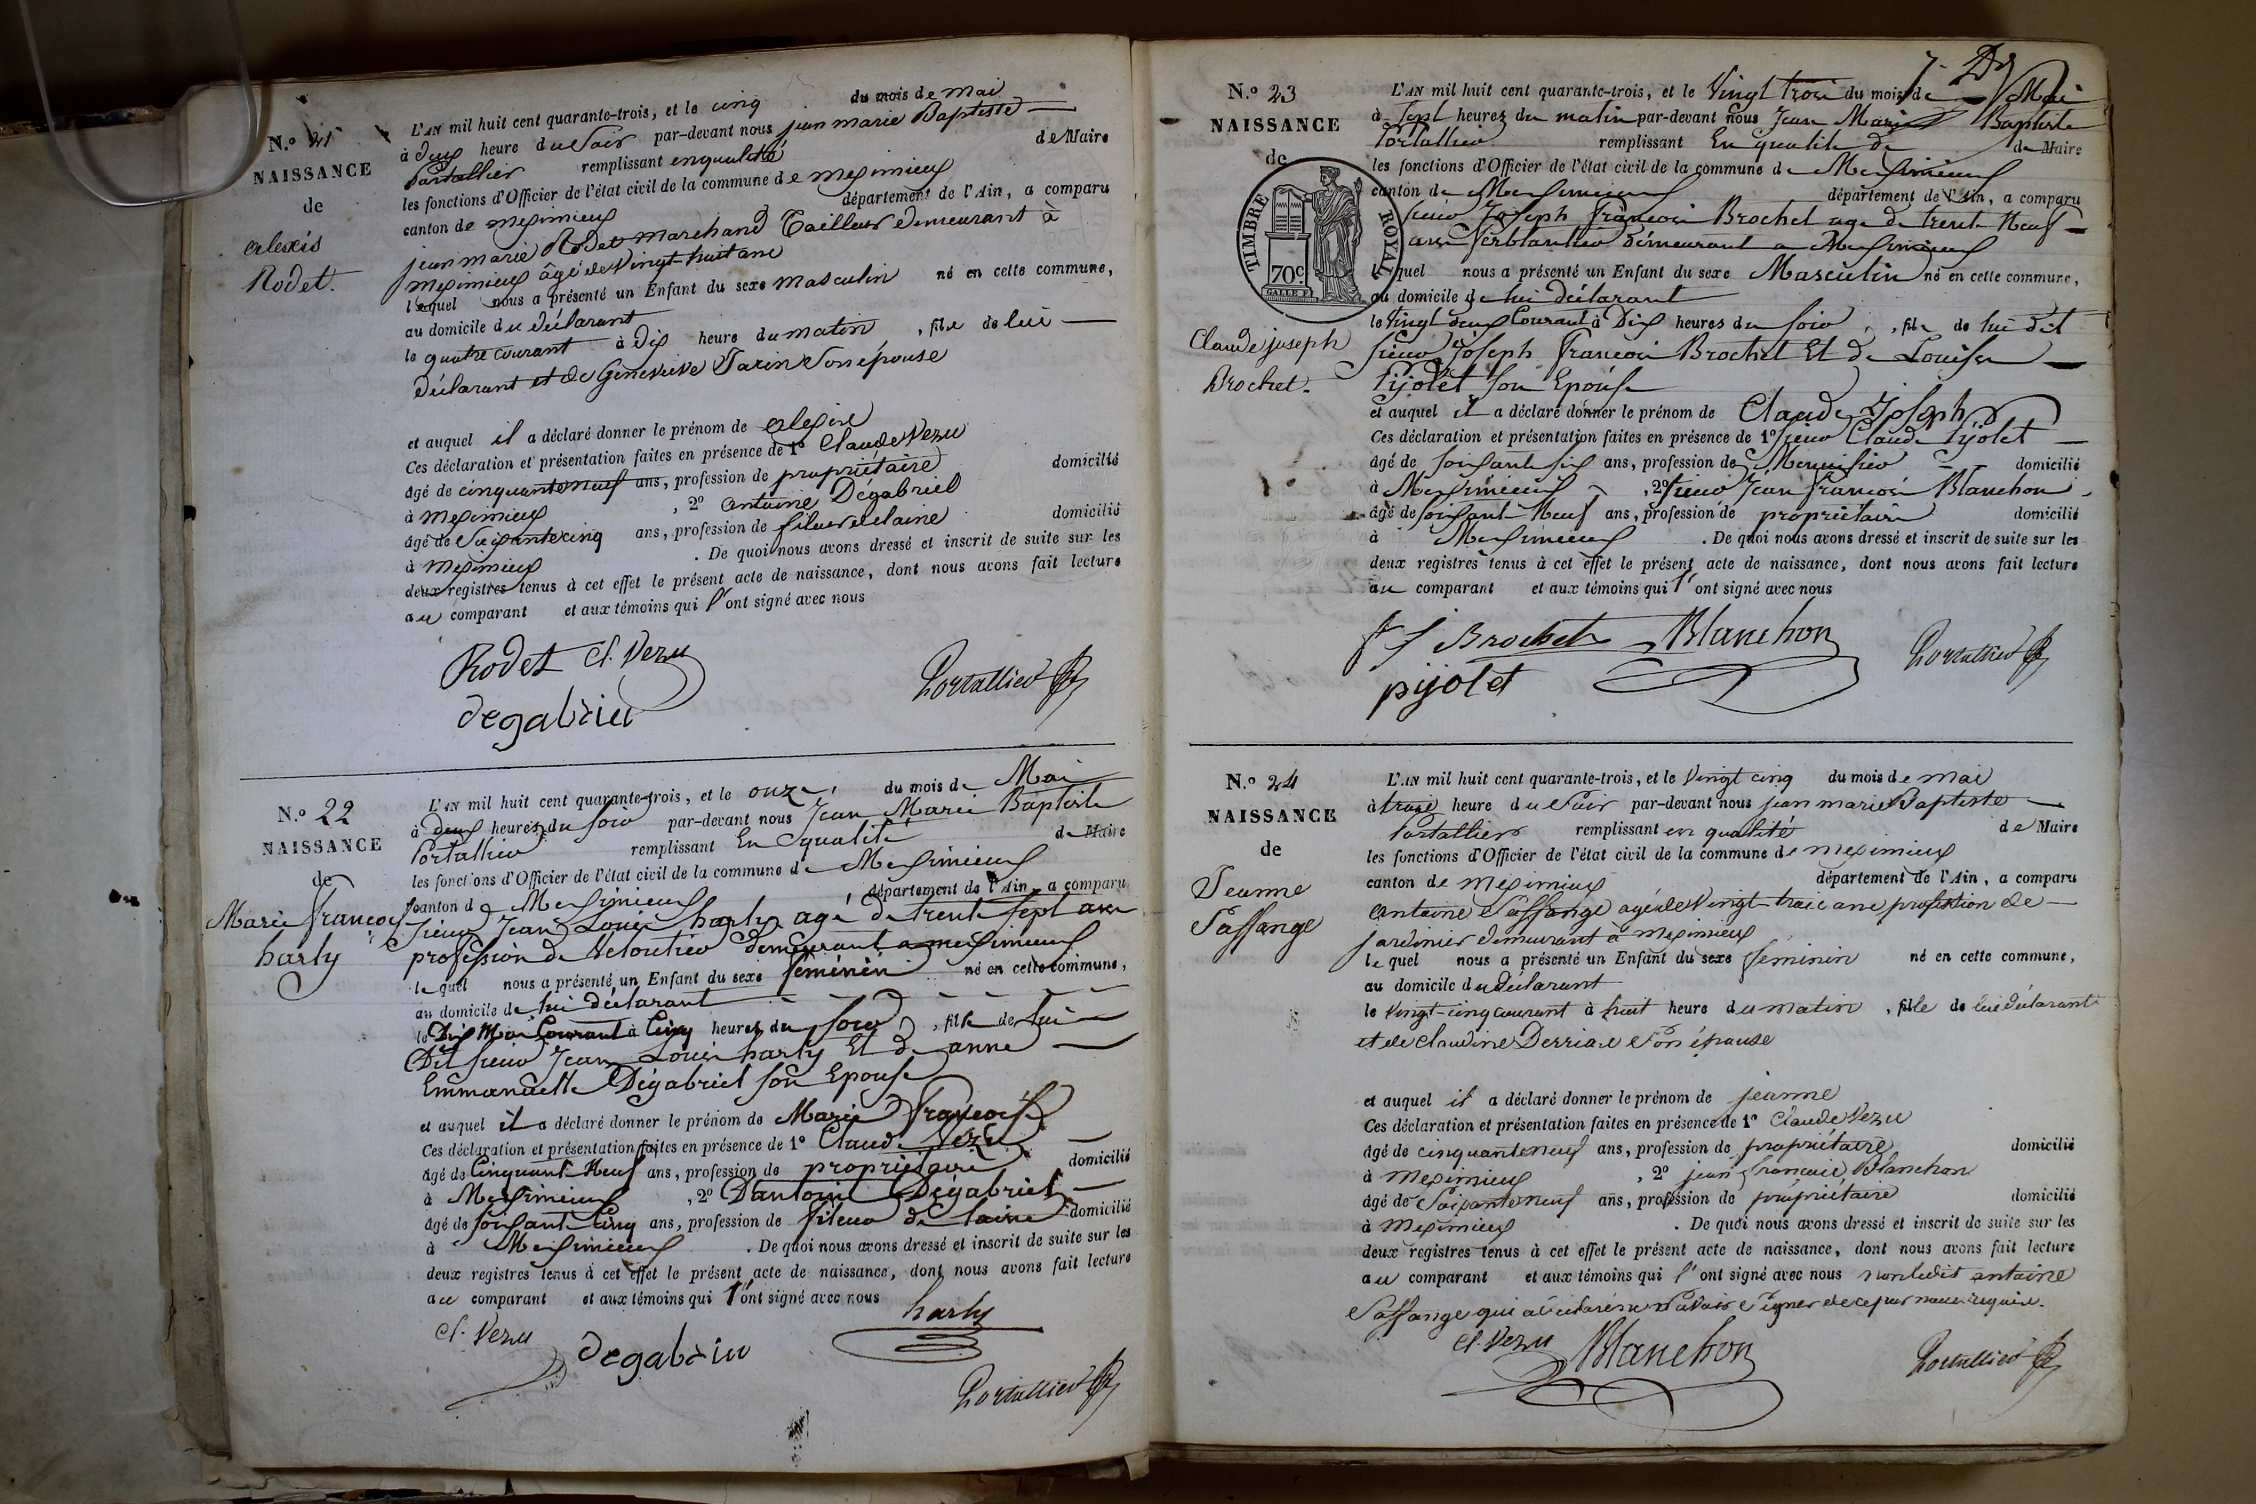 N.º 21
NAISSANCE
de
alexis
Rodet.
L'AN mil huit cent quarante-trois, et le cinq du mois de mai
à deux heure du soir par-devant nous jean marie Baptiste
Portallier remplissant en qualité de Maire
les fonctions d'Officier de l'état civil de la commune de meximieux
canton de meximieux département de l'Ain, a comparu
jean marie Rodet marchand Tailleur demeurant à
meximieux âgé de vingt-huit ans
lequel nous a présenté un Enfant du sexe masculin né en cette commune,
au domicile du déclarant
le quatre courant à dix heure du matin, fils de lui
déclarant et de Genevieve Tarin son épouse
et auquel il a déclaré donner le prénom de alexis
Ces déclaration et présentation faites en présence de 1º Claude Vezu
âgé de cinquante neuf ans, profession de propriétaire domicilié
à meximieux, 2º antoine Dégabriel
âgé de soixante cinq ans, profession de fileur de laine domicilié
à meximieux. De quoi nous avons dressé et inscrit de suite sur les
deux registres tenus à cet effet le présent acte de naissance, dont nous avons fait lecture
au comparant et aux témoins qui l'ont signé avec nous
Rodet Cl. Vezu
degabriel Portallier
N.º 22
NAISSANCE
de
Marie françoise
harly
L'AN mil huit cent quarante-trois, et le onze du mois de Mai
à deux heures du soir par-devant nous Jean Marie Baptiste
Portallier remplissant En qualité de Maire
les fonctions d'Officier de l'état civil de la commune de Meximieux
canton de Meximieux département de l'Ain, a comparu
sieur Jean Louis harly agé de trente sept ans
profession de Veloutier demeurant a meximieux
lequel nous a présenté un Enfant du sexe féminin né en cette commune,
au domicile de lui déclarant
le Dix Mai Courant à Cinq heures du soir, fille de lui
Dit sieur Jean Louis harly Et de anne
Emmanuelle Dégabriel son Epouse
et auquel il a déclaré donner le prénom de Marie françoise
Ces déclaration et présentation faites en présence de 1º Claude Vezu
âgé de Cinquante Neuf ans, profession de propriétaire domicilié
à Meximieux, 2º D'antoine Dégabriel
âgé de soixante Cinq ans, profession de fileur de laine domicilié
à Meximieux. De quoi nous avons dressé et inscrit de suite sur les
deux registres tenus à cet effet le présent acte de naissance, dont nous avons fait lecture
au comparant et aux témoins qui l'ont signé avec nous
harly
Cl. Vezu degabriel
Portallier
N.º 23
NAISSANCE
de
TIMBRE ROYAL
70 c.
GALLE F.
Claude joseph
Brochet.
L'AN mil huit cent quarante-trois, et le Vingt trois du mois de Mai
à sept heures du matin par-devant nous Jean Marie Baptiste
Portallier remplissant En qualité de de Maire
les fonctions d'Officier de l'état civil de la commune de Meximieux
canton de Meximieux département de l'Ain, a comparu
sieur Joseph françois Brochet age de trente Neuf
ans ferblantier demeurant a Meximieux
lequel nous a présenté un Enfant du sexe Masculin né en cette commune,
au domicile de lui déclarant
le Vingt deux Courant à Dix heures du soir, fils de lui dit
sieur Joseph françois Brochet Et de Louise
Pijolet son Epouse
et auquel il a déclaré donner le prénom de Claude Joseph
Ces déclaration et présentation faites en présence de 1º sieur Claude Pijolet
âgé de soixante six ans, profession de Menuisier domicilié
à Meximieux, 2º sieur Jean françois Blanchon
âgé de soixante Neuf ans, profession de propriétaire domicilié
à Meximieux. De quoi nous avons dressé et inscrit de suite sur les
deux registres tenus à cet effet le présent acte de naissance, dont nous avons fait lecture
au comparant et aux témoins qui l'ont signé avec nous
Brochet Blanchon
pijolet Portallier
N.º 24
NAISSANCE
de
Jeanne
Paffange
L'AN mil huit cent quarante-trois, et le Vingt cinq du mois de mai
à trois heure du soir par-devant nous jean marie Baptiste
Portallier remplissant en qualité de Maire
les fonctions d'Officier de l'état civil de la commune de meximieux
canton de meximieux département de l'Ain, a comparu
antoine Paffange agé de Vingt-trois ans profession de
jardinier demeurant à meximieux
lequel nous a présenté un Enfant du sexe féminin né en cette commune,
au domicile du déclarant
le Vingt-cinq courant à huit heure du matin, fille de lui déclarant
et de claudine Derriaz son épouse
et auquel il a déclaré donner le prénom de jeanne
Ces déclaration et présentation faites en présence de 1º Claude Vezu
âgé de cinquante neuf ans, profession de propriétaire domicilié
à meximieux, 2º jean françois Blanchon
âgé de soixante neuf ans, profession de propriétaire domicilié
à meximieux. De quoi nous avons dressé et inscrit de suite sur les
deux registres tenus à cet effet le présent acte de naissance, dont nous avons fait lecture
au comparant et aux témoins qui l'ont signé avec nous non ledit antoine
Paffange qui a déclaré ne savoir signer de ce par nous requis.
Cl. Vezu Blanchon Portallier